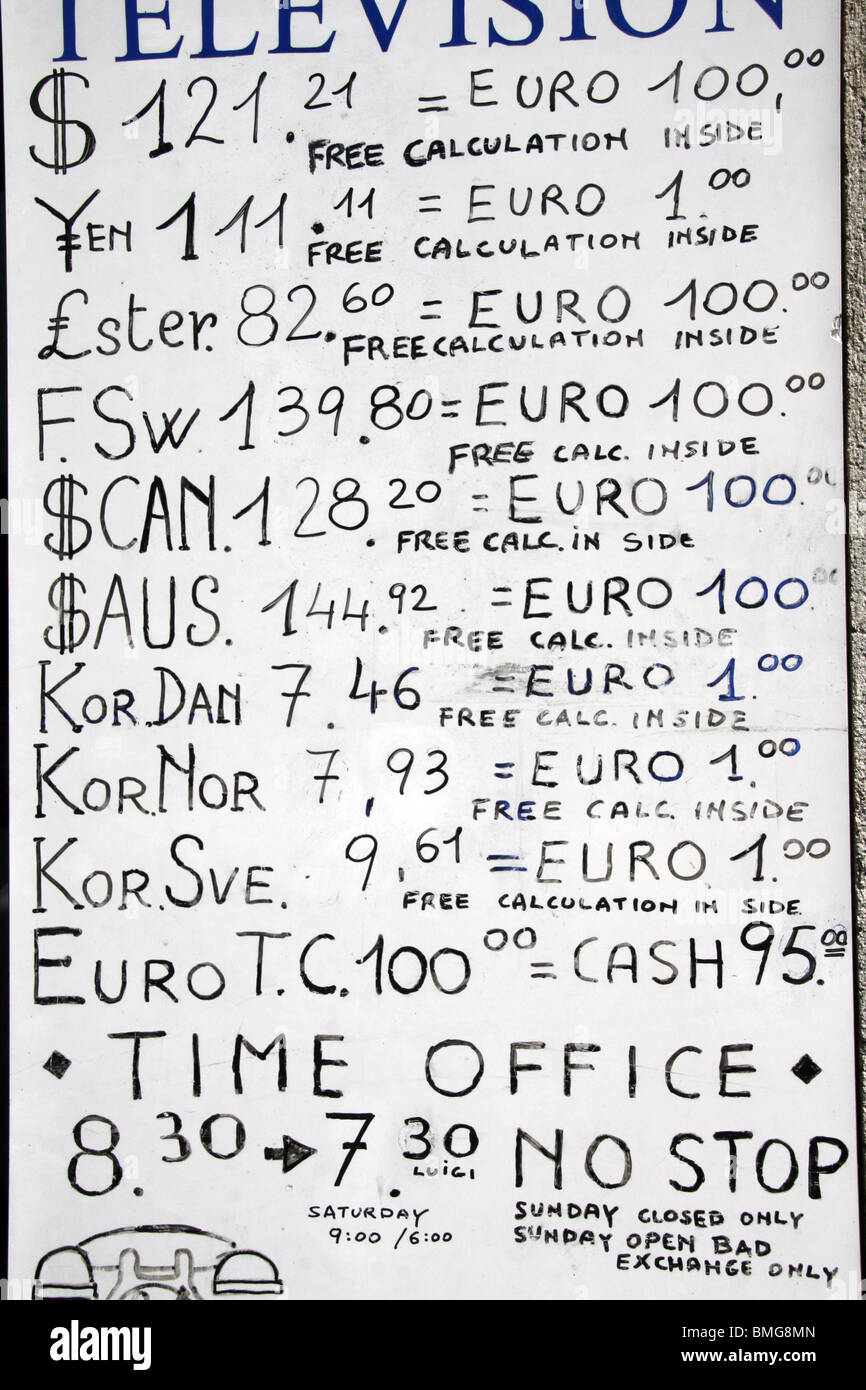 TELEVISION
$ 121.21 = EURO 100,00
FREE CALCULATION INSIDE
¥EN 111.11 = EURO 1.00
FREE CALCULATION INSIDE
£ster. 82.60 = EURO 100.00
FREE CALCULATION INSIDE
F.Sw 139.80 = EURO 100.00
FREE CALC. INSIDE
$CAN. 128.20 = EURO 100.00
FREE CALC. IN SIDE
$AUS. 144.92 = EURO 100.00
FREE CALC. INSIDE
KOR.DAN 7.46 = EURO 1.00
FREE CALC. INSIDE
KOR.NOR 7,93 = EURO 1.00
FREE CALC. INSIDE
KOR.SVE. 9,61 = EURO 1.00
FREE CALCULATION IN SIDE
EURO T.C. 100 00 = CASH 95.00
◆ TIME OFFICE ◆
8.30 → 7.30 NO STOP
LUIGI
SATURDAY
9:00 / 6:00
SUNDAY CLOSED ONLY
SUNDAY OPEN BAD
EXCHANGE ONLY
alamy
Image ID: BMG8MN
www.alamy.com